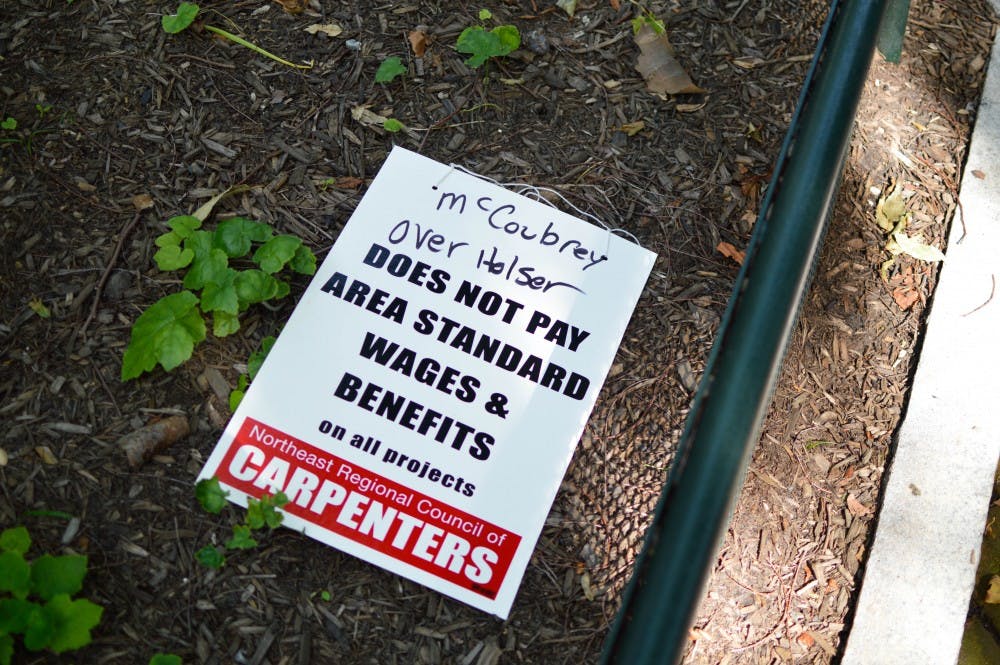 McCoubrey
Over Holser
DOES NOT PAY
AREA STANDARD
WAGES &
BENEFITS
on all projects
Northeast Regional Council of
CARPENTERS